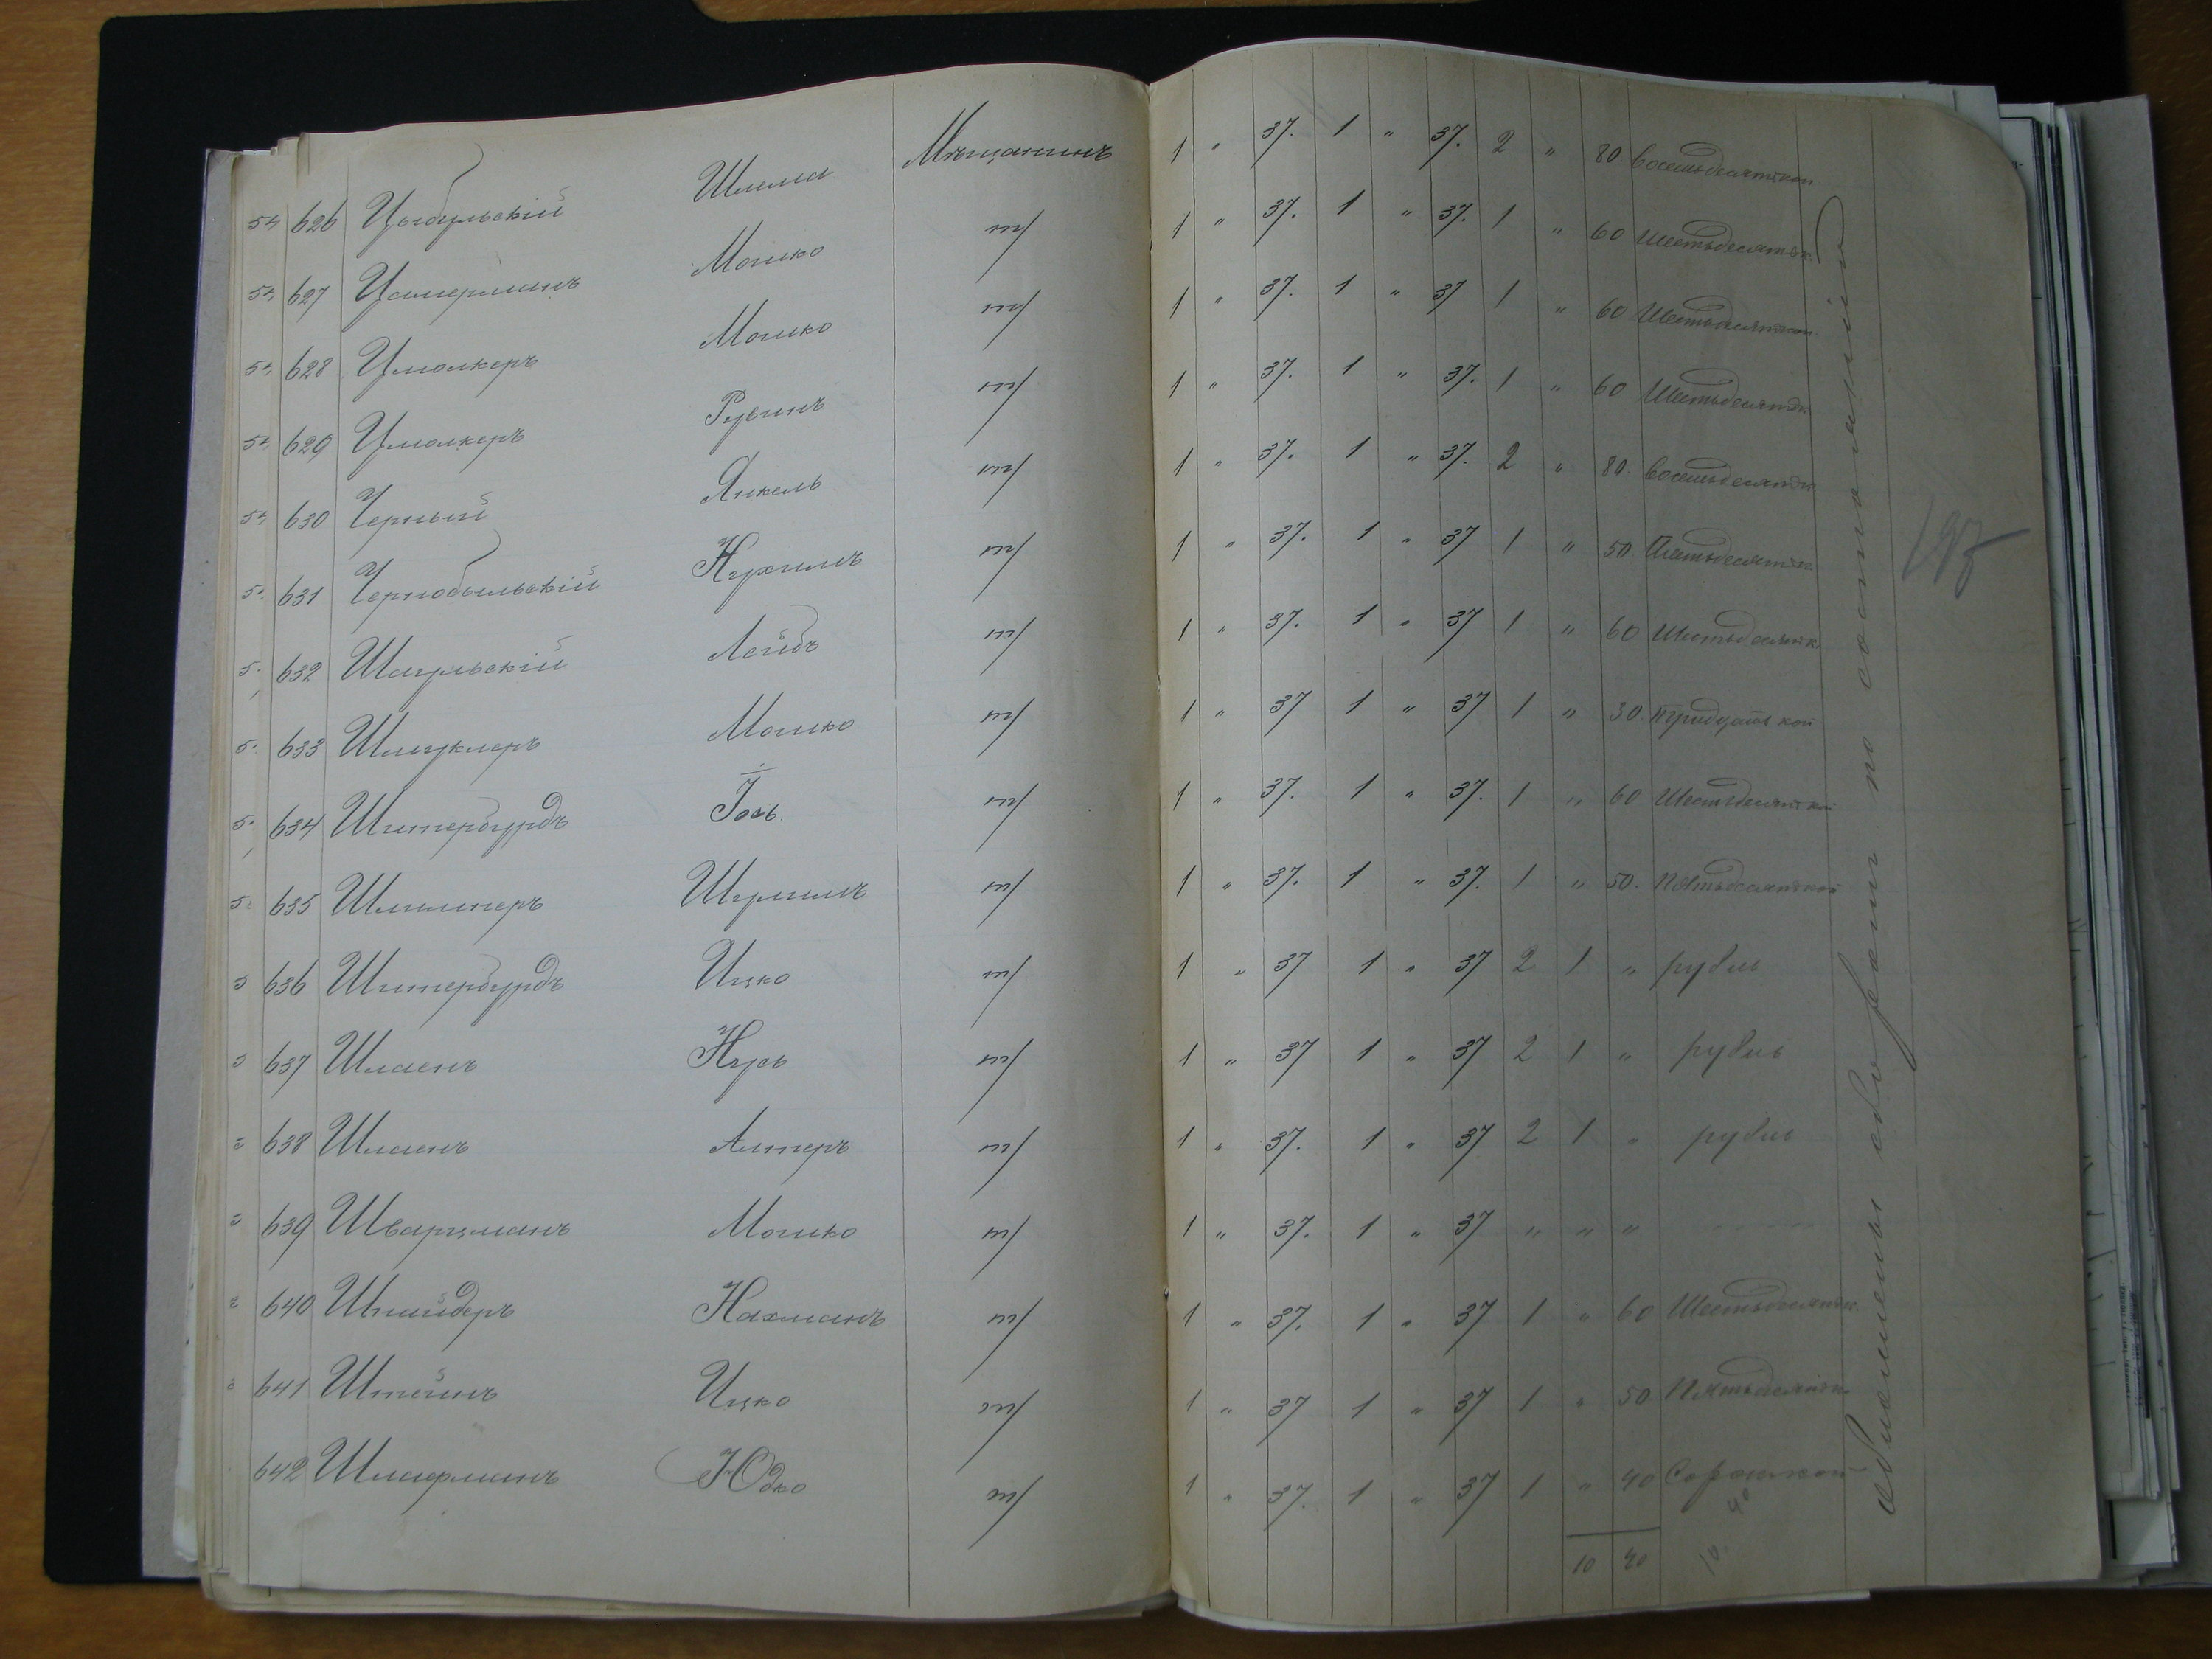 626 Цыбульскій Шлема Мѣщанинъ 1 " 37. 1 " 37. 2 " 80 восемьдесятъ коп
627 Цимерманъ Мошко т/ 1 " 37. 1 " 37. 1 " 60 Шестьдесятъ к.
628 Цмолкеръ Мошко т/ 1 " 37. 1 " 37 1 " 60 Шестьдесятъ коп
629 Цмолкеръ Рувинъ т/ 1 " 37. 1 " 37. 1 " 60 Шестьдесятъ к
630 Черный Янкель т/ 1 " 37. 1 " 37. 2 " 80. восемьдесятъ к
631 Чернобыльскій Нухимъ т/ 1 " 37. 1 " 37 1 " 50 Пятьдесятъ к
632 Шаульскій Лейбъ т/ 1 " 37. 1 " 37 1 " 60 Шестьдесятъ к.
633 Шмуклеръ Мошко т/ 1 " 37 1 " 37 1 " 30 тридцать коп
634 Штербурдъ Іось т/ 1 " 37. 1 " 37. 1 " 60 Шестьдесятъ коп
635 Шмилтеръ Шулимъ т/ 1 " 37. 1 " 37. 1 " 50. Пятьдесятъ коп
636 Штербурдъ Ицко т/ 1 " 37 1 " 37 2 1 " рубль
637 Шлаенъ Нусь т/ 1 " 37 1 " 37 2 1 " рубль
638 Шлаенъ Алтеръ т/ 1 " 37. 1 " 37 2 1 " рубль
639 Шварцманъ Мошко т/ 1 " 37. 1 " 37 " " "
640 Шнайдеръ Нахманъ т/ 1 " 37. 1 " 37 1 " 60 Шестьдесятъ к.
641 Штейнъ Ицко т/ 1 " 37 1 " 37 1 " 50 Пятьдесятъ к.
642 Шлафманъ Юдко т/ 1 " 37. 1 " 37 1 " 40 Сорокъ коп
10 40
10 40
по состоянію